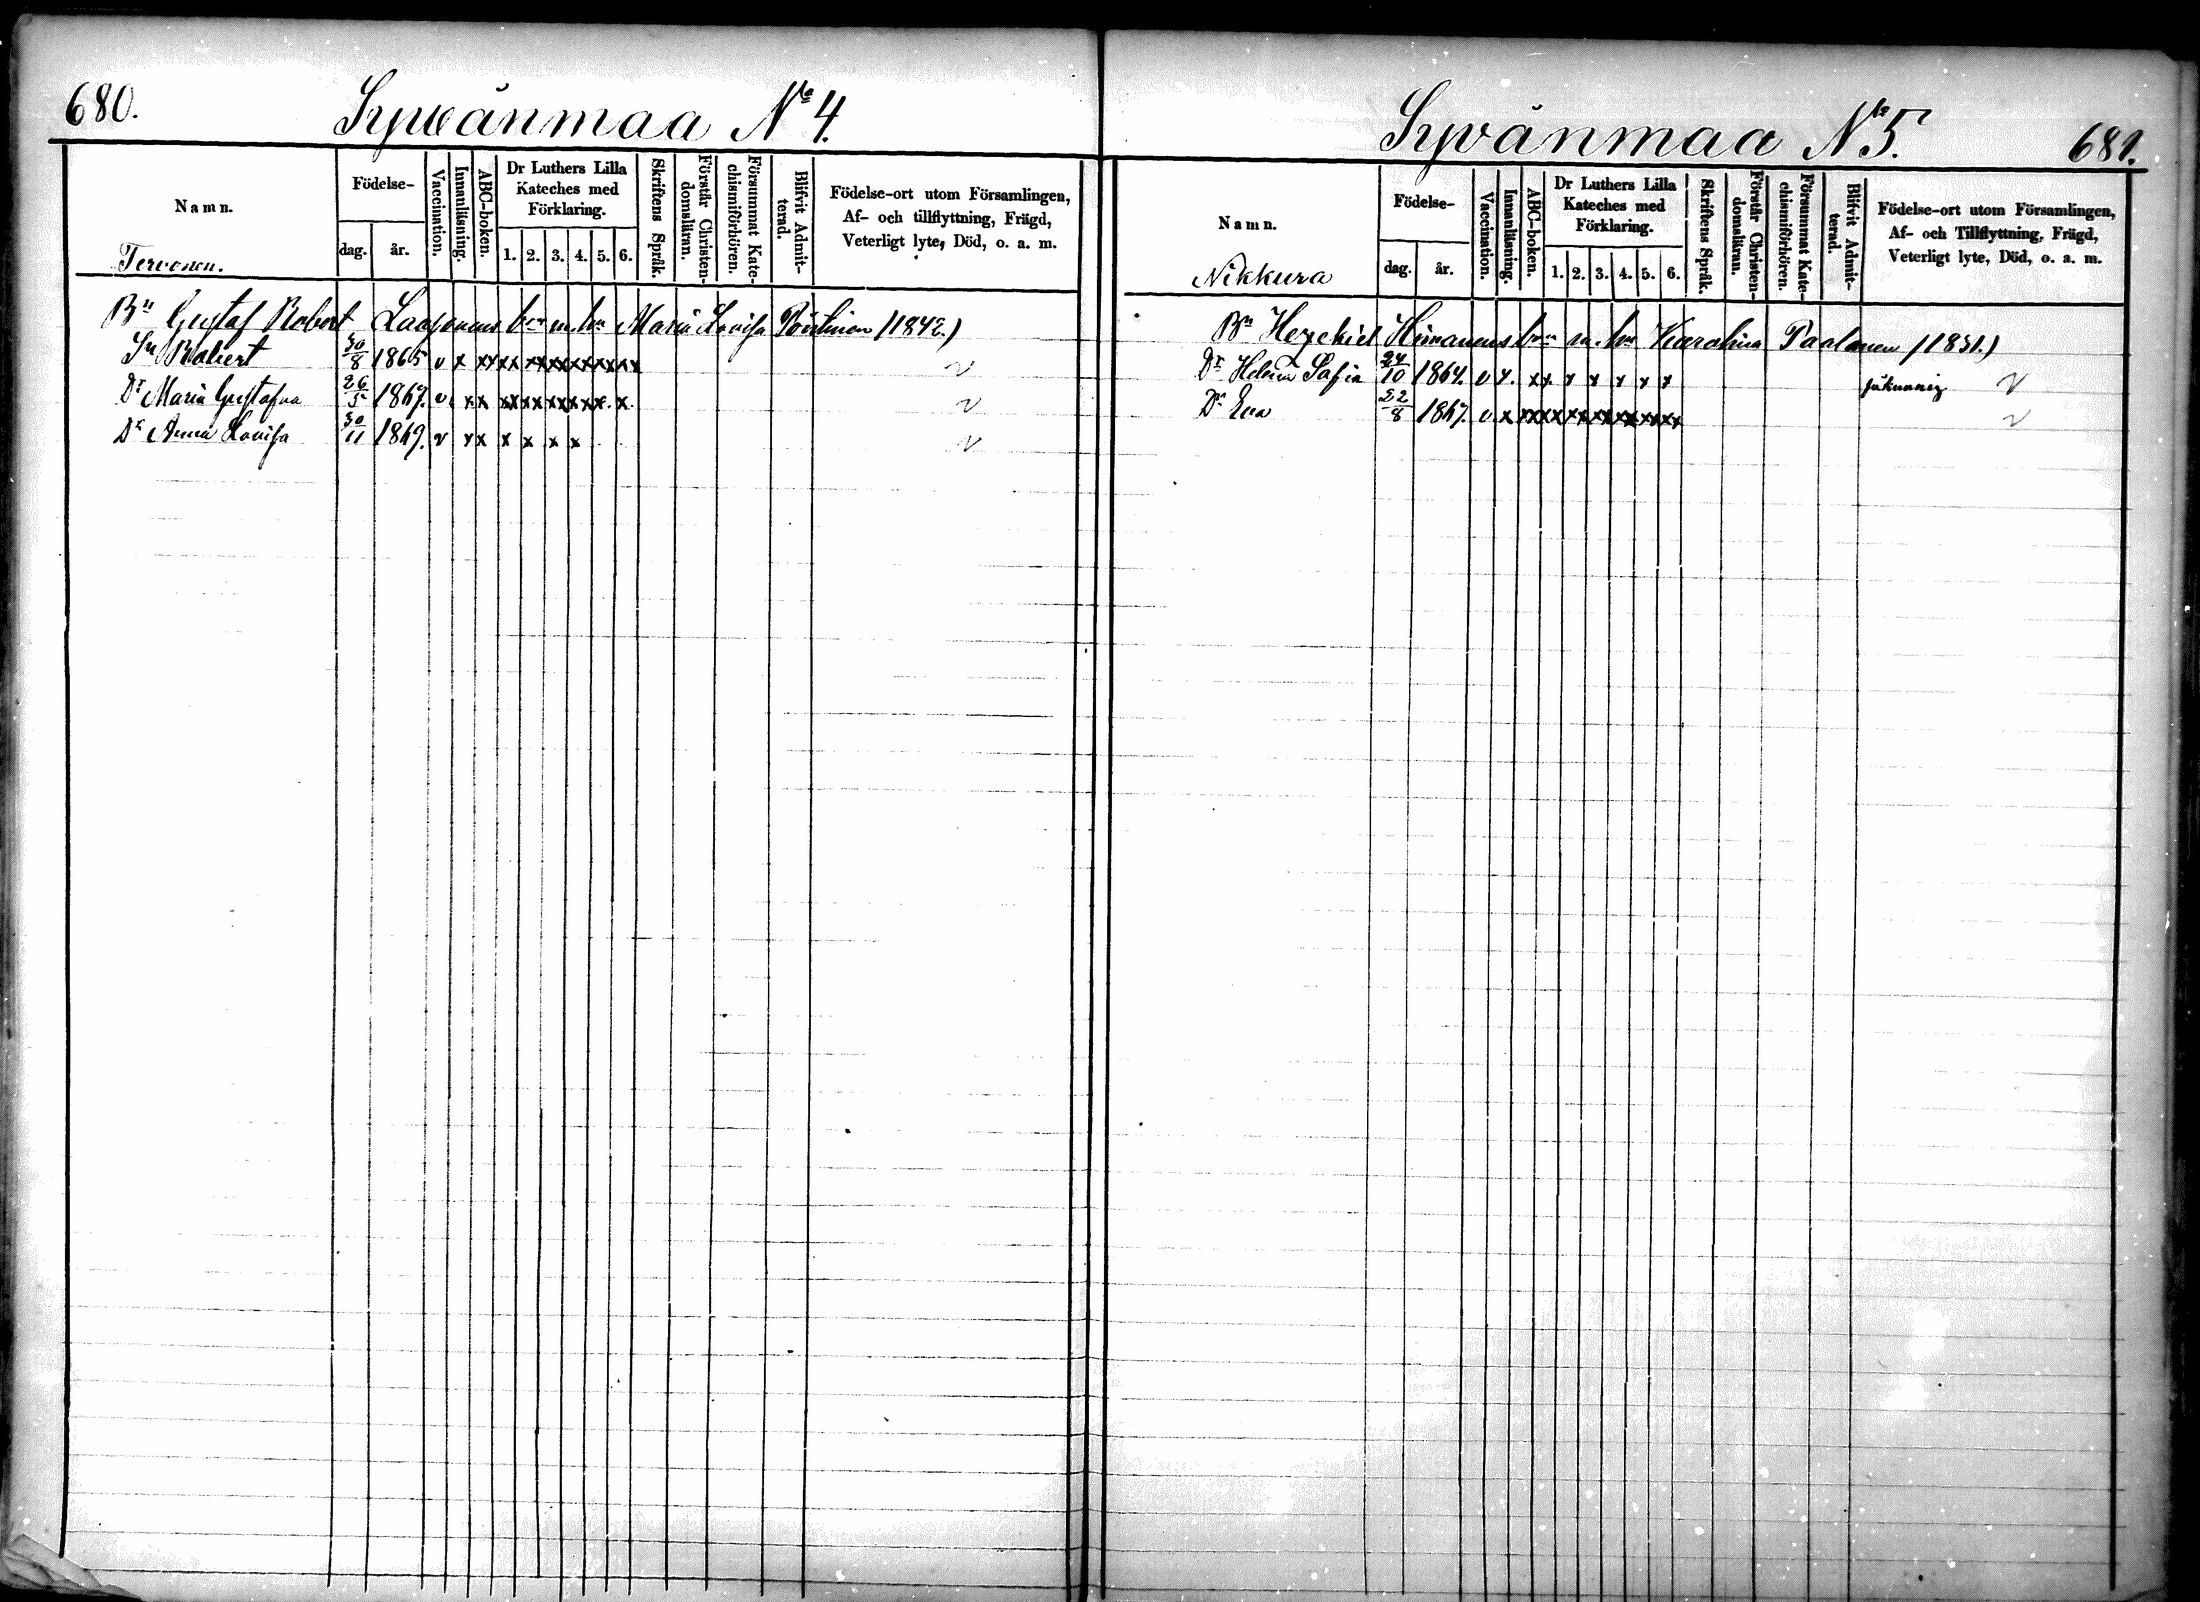 680.
Sywänmaa No 4.
Namn.
Födelse-
dag.
år.
Vaccination.
Innanläsning.
ABC-boken.
Dr Luthers Lilla
Kateches med
Förklaring.
1. 2. 3. 4. 5. 6.
Skriftens Språk.
Förstår Christen-
domsläran.
Försummat Kate-
chismiförhören.
Blifvit Admit-
terad.
Födelse-ort utom Församlingen,
Af- och tillflyttning, Frägd,
Veterligt lyte, Död, o. a. m.
Tervonen.
Bn Gustaf Robert Laasonens brn m. hu Maria Lovisa (1842.)
Sn Robert 30/8 1865 v x xx xx xx xx xx xx xx v
Dr Maria Gustafva 26/5 1867. v. xx xx xx xx xx x. x. v
Dr Anna Lovisa 30/11 1869. v xx x x x x v
Sywänmaa No 5.
681.
Namn.
Födelse-
dag.
år.
Vaccination.
Innanläsning.
ABC-boken.
Dr Luthers Lilla
Kateches med
Förklaring.
1. 2. 3. 4. 5. 6.
Skriftens Språk.
Förstår Christen-
domsläran.
Försummat Kate-
chismiförhören.
Blifvit Admit-
terad.
Födelse-ort utom Församlingen,
Af- och Tillflyttning, Frägd,
Veterligt lyte, Död, o. a. m.
Nikkura
Bn Hezekiel Himanens brn m. hu Karolina Paalanen (1831.)
Dr Helena Sofia 24/10 1864. v x. xx. x x x x x v
Dr Eva 22/8 1867. v x xx xx xx xx xx xx xx v